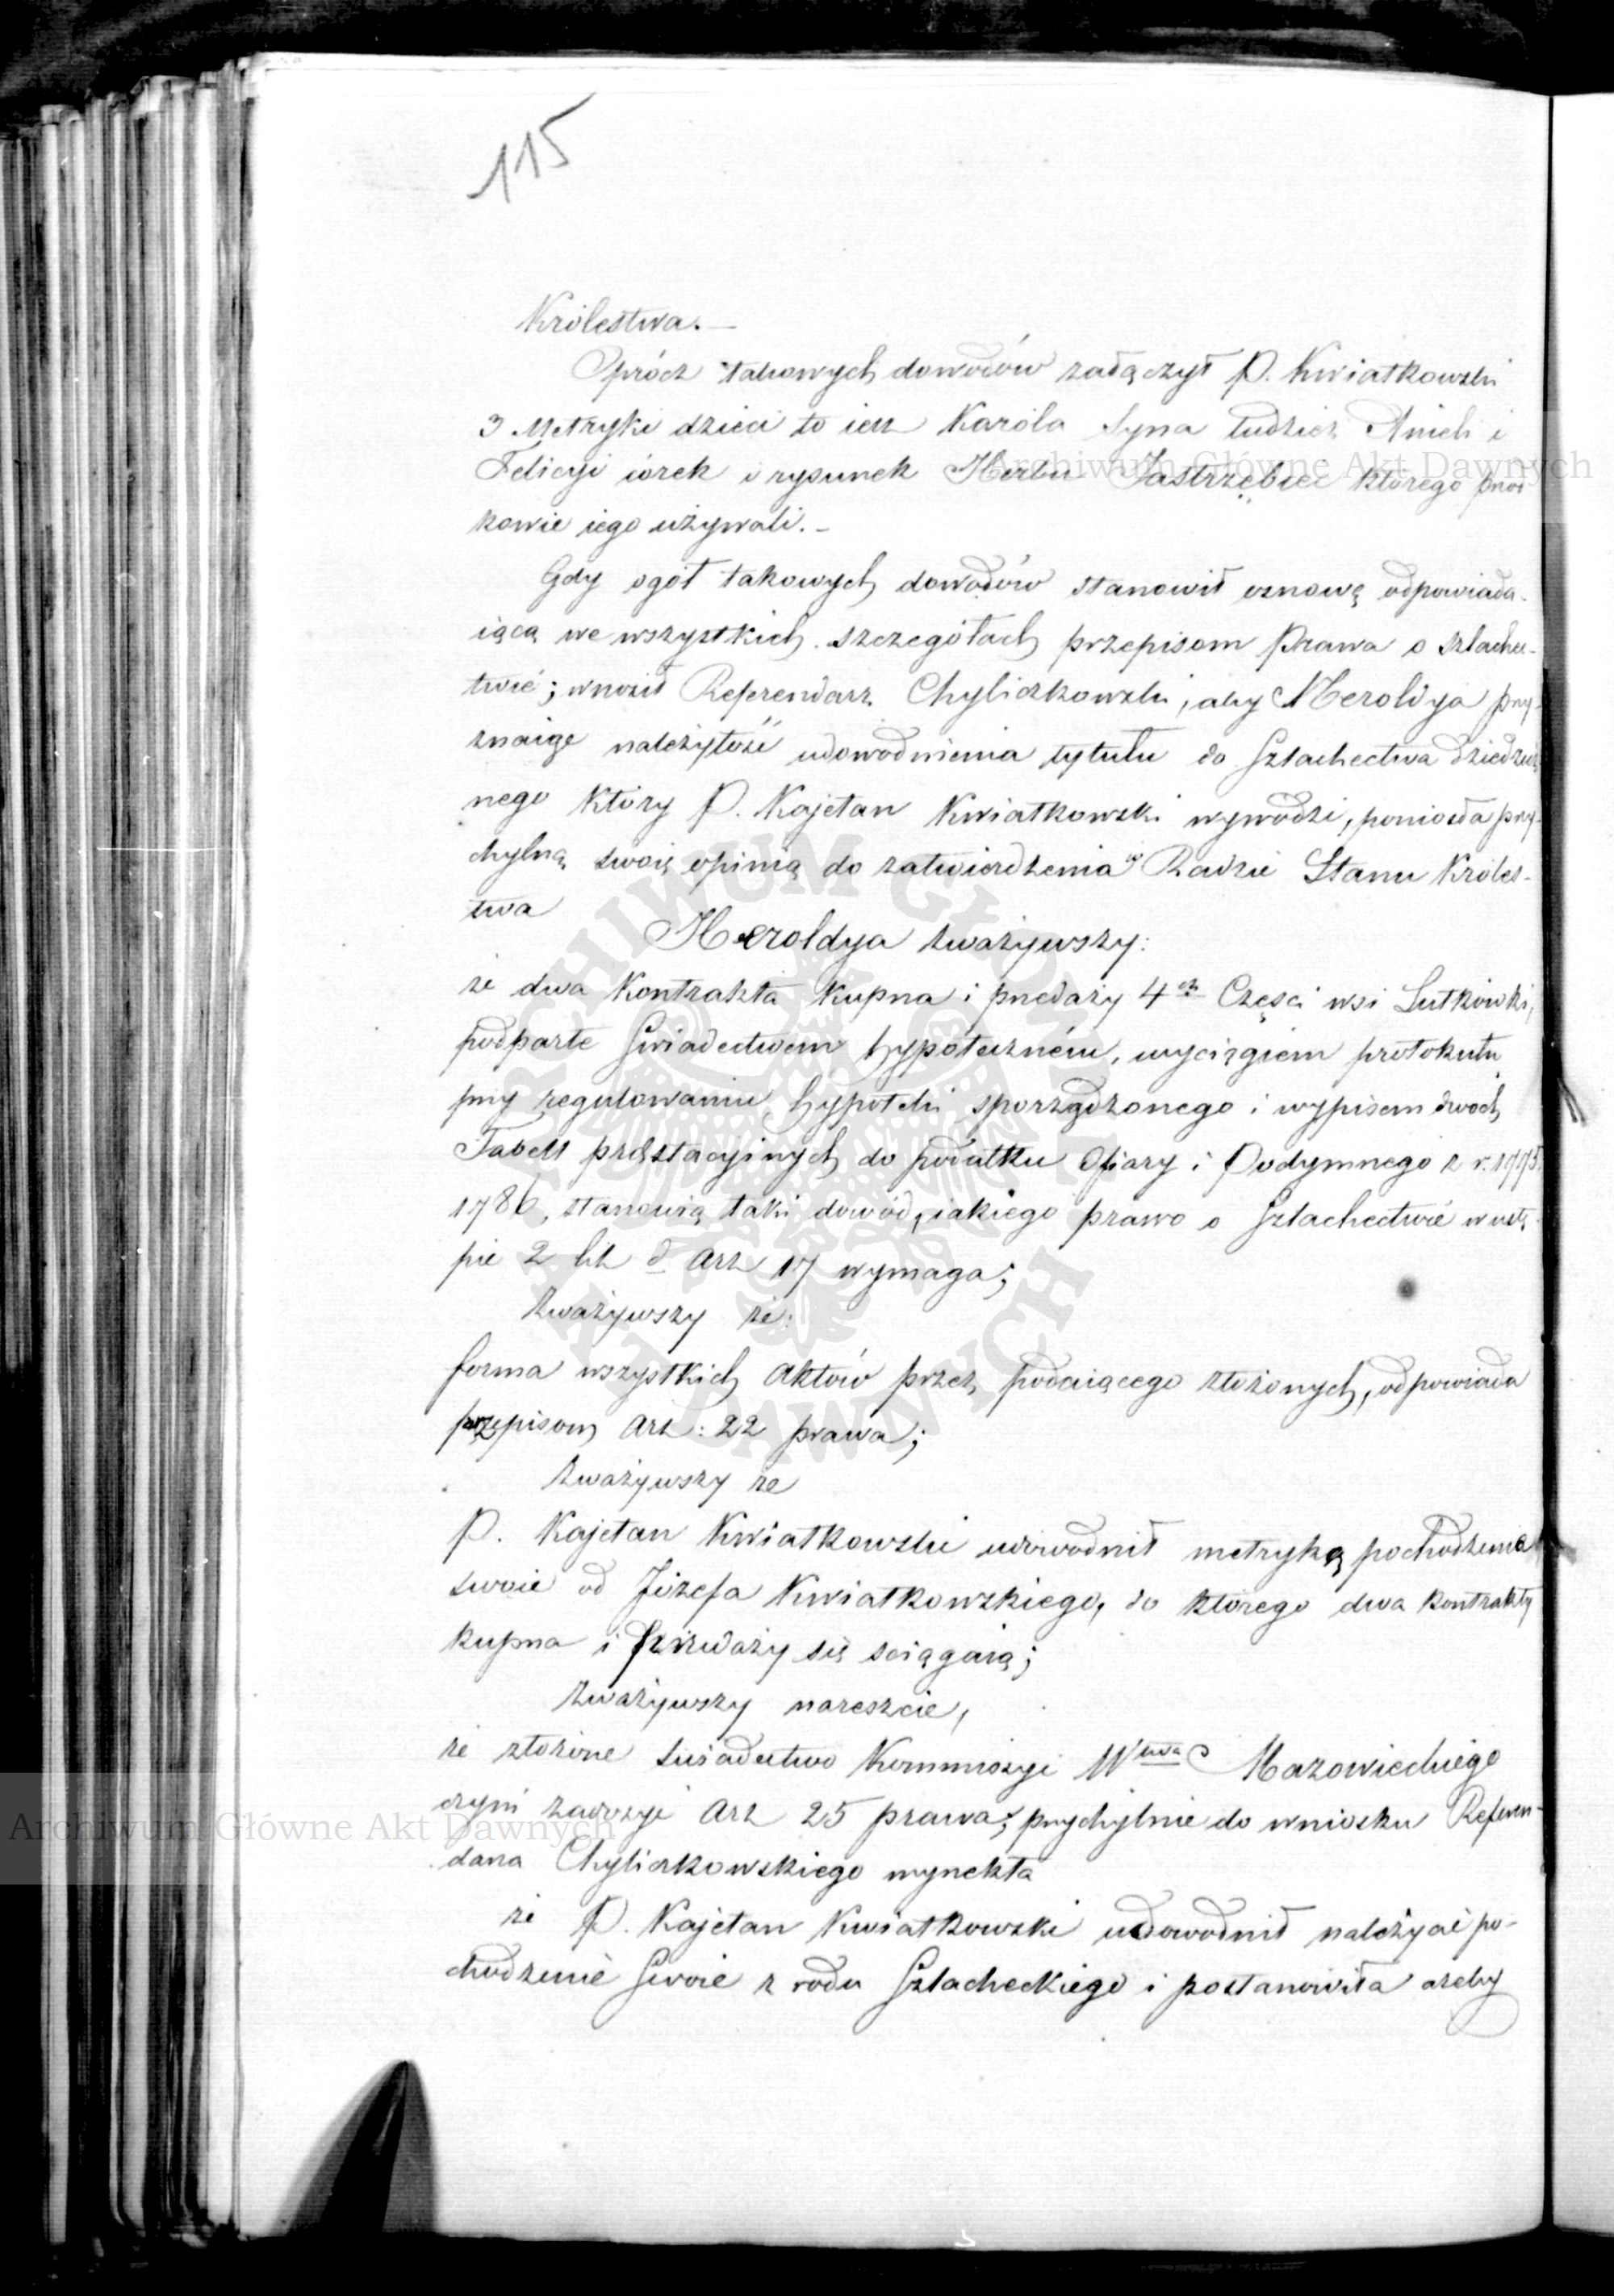 115
Królestwa. —
Oprócz takowych dowodów załączył P. Kwiatkowski
3 Metryki dzieci to iest Karola Syna tudzież Anieli i
Felicyi córek i rysunek Herbu Jastrzębiec którego przod-
kowie iego używali. —
Gdy ogół takowych dowodów stanowił osnowę odpowiada-
iącą we wszystkich szczegółach przepisom Prawa o szlachec-
twie; wnosił Referendarz Chyliczkowski, aby Heroldya przy-
znaiąc należytość udowodnienia tytułu do Szlachectwa dziedzicz
nego który P. Kajetan Kwiatkowski wywodzi, poniosła przy-
chylną swoię opinią do zatwierdzenia w Radzie Stanu Króles-
twa
Heroldya zważywszy:
że dwa Kontrakta Kupna i przedaży 4ch Części wsi Lutkówki,
podparte Świadectwem hypoteczném, wyciągiem protokułu
przy regulowaniu hypoteki sporządzonego i wypisem dwóch
Tabell prestacyinych do podatku Ofiary i Podymnego z r. 1775.
1786, stanowią taki dowód, iakiego prawo o Szlachectwie w ustę-
pie 2 lit d Art 17 wymaga;
Zważywszy że:
forma wszystkich Aktów przez podaiącego złożonych, odpowiada
przepisom Art: 22 prawa;
Zważywszy że
P. Kajetan Kwiatkowski udowodnił metryką pochodzenie
swoie od Józefa Kwiatkowskiego, do którego dwa kontrakty
kupna i przedaży się sciągaią;
Zważywszy nareszcie,
że złożone świadectwo Kommissyi Wtwa Mazowieckiego
czyni zadosyć Art 25 prawa; przychylnie do wniosku Referen-
darza Chyliczkowskiego wyrzekła
że P. Kajetan Kwiatkowski udowodnił należycie po-
chodzenie Swoie z rodu Szlacheckiego i postanowiła ażeby
Archiwum Główne Akt Dawnych
Archiwum Główne Akt Dawnych
ARCHIWUM GŁÓWNE AKT DAWNYCH